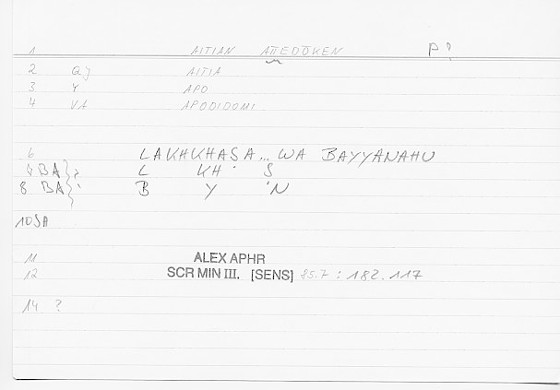 1 AITIAN APEDŌKEN P?
2 GJ AITIA
3 Y APO
4 VA APODIDOMI
6 LAKHKHASA... WA BAYYANAHU
6 BA}? L KH S
8 BA} B Y 'N
10 SA
11 ALEX APHR
12 SCR MIN III. [SENS] 85.7 : 182.117
14 ?